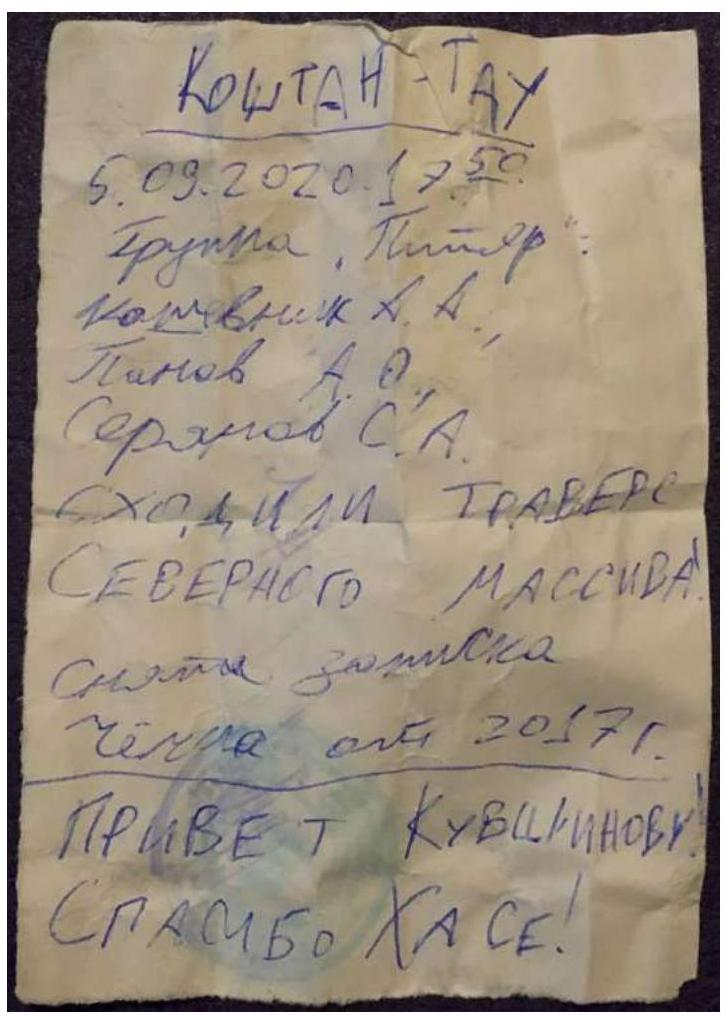 КОШТАН-ТАУ
5.09.2020. 17.50
Группа "Питер":
Кашевник А. А.,
Панов А. О.,
Серанов С. А.
СХОДИЛИ ТРАВЕРС
СЕВЕРНОГО МАССИВА!
Снята записка
от 2017 г.
ПРИВЕТ КУВШИНОВУ!
СПАСИБО ХАСЕ!